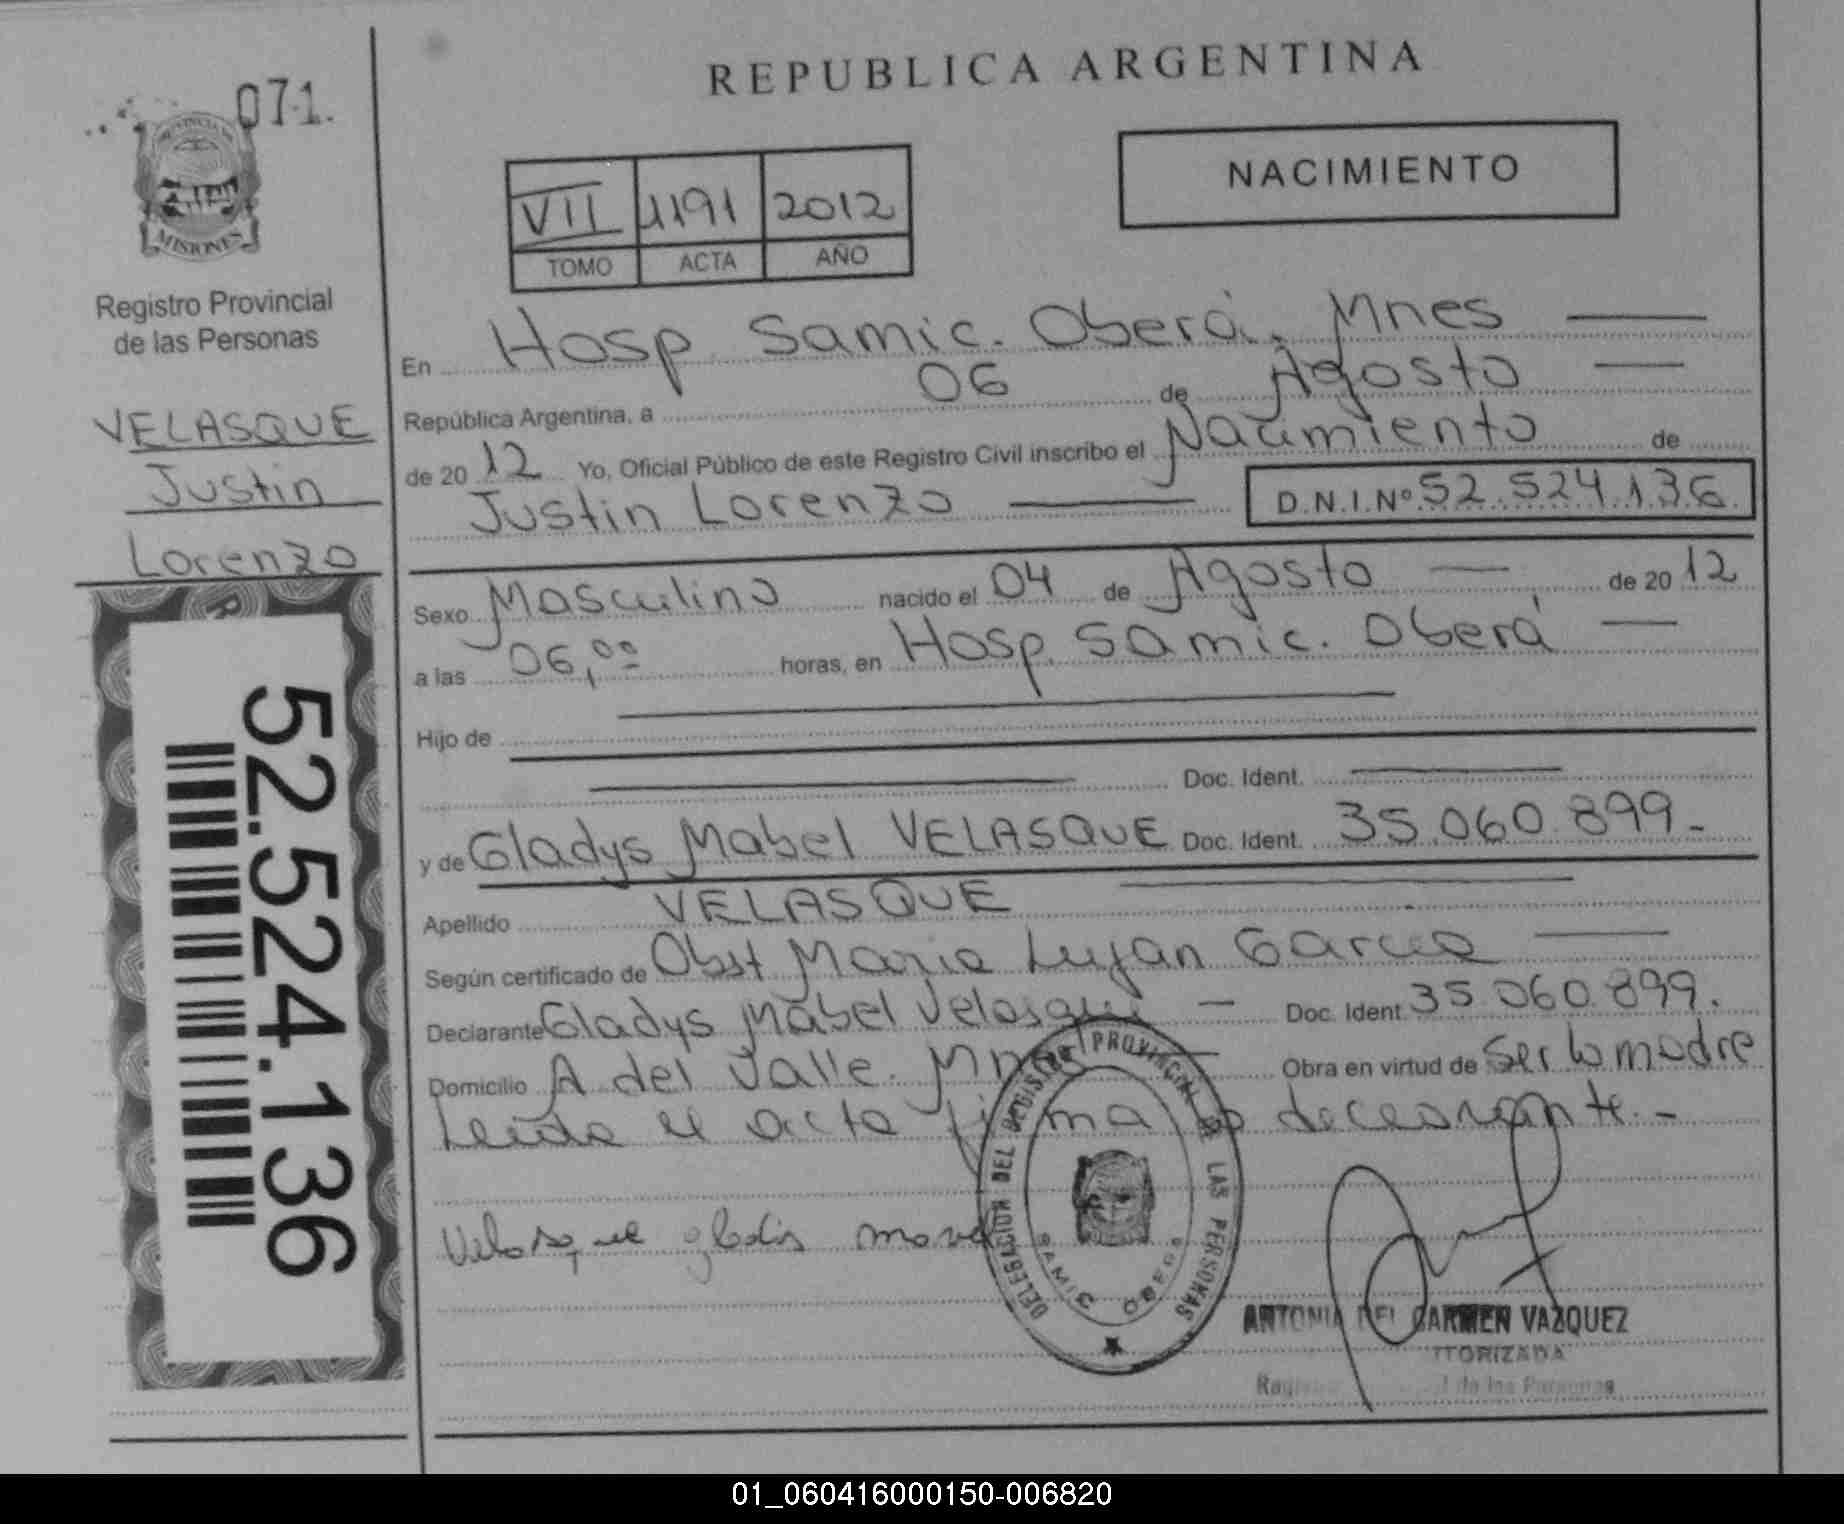 REPUBLICA ARGENTINA
071.
PROVINCIA DE
MISIONES
Registro Provincial
de las Personas
VELASQUE
Justin
Lorenzo
52.524.136
NACIMIENTO
VII 1191 2012
TOMO ACTA AÑO
En Hosp. Samic. Oberá. Mnes
República Argentina, a 06 de Agosto
de 2012 Yo, Oficial Público de este Registro Civil inscribo el Nacimiento de
Justin Lorenzo D.N.I.Nº 52.524.136.
Sexo Masculino nacido el 04 de Agosto de 2012
a las 06,00 horas, en Hosp. Samic. Oberá
Hijo de
Doc. Ident.
y de Gladys Mabel VELASQUE Doc. Ident. 35.060.899.-
Apellido VELASQUE
Según certificado de Obst Maria Lujan Garcia
Declarante Gladys Mabel Velasque - Doc. Ident. 35.060.899.
Domicilio A del Valle. Mnes Obra en virtud de Ser la madre
Leida el acta firma la declarante.-
Velasque gladis
DELEGACION DEL REGISTRO PROVINCIAL DE LAS PERSONAS
SAMIC OBERA
ANTONIA DEL CARMEN VAZQUEZ
de las Personas
01_060416000150-006820